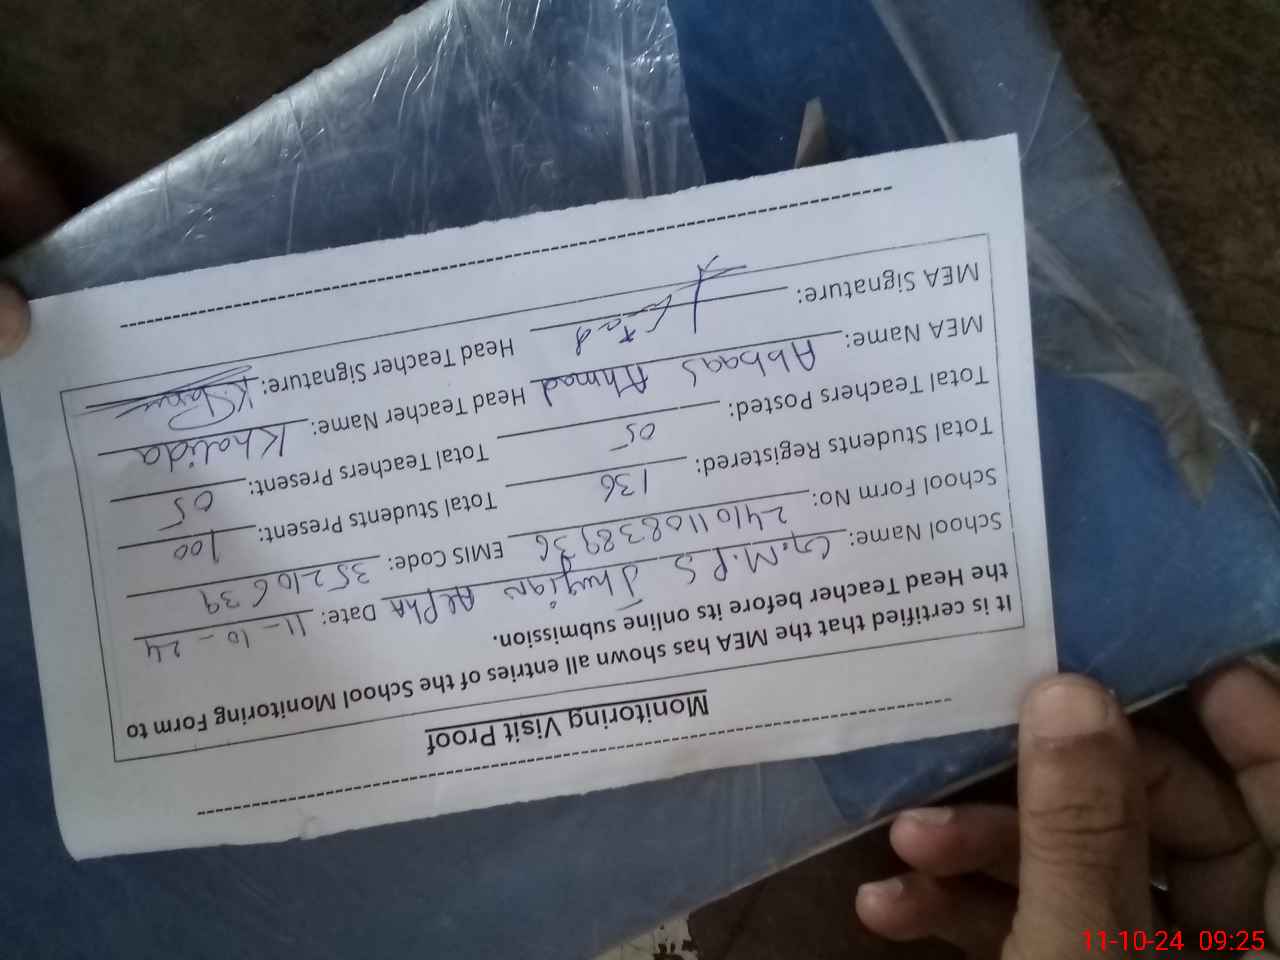 Monitoring Visit Proof
It is certified that the MEA has shown all entries of the School Monitoring Form to
the Head Teacher before its online submission.
School Name: G.M.P.S Jhugian Alpha Date: 11-10-24
School Form No: 2410110838936 EMIS Code: 35210639
Total Students Registered: 136 Total Students Present: 100
Total Teachers Posted: 05 Total Teachers Present: 05
MEA Name: Abbaas Ahmad Head Teacher Name: Khalida
MEA Signature: Head Teacher Signature:
11-10-24 09:25